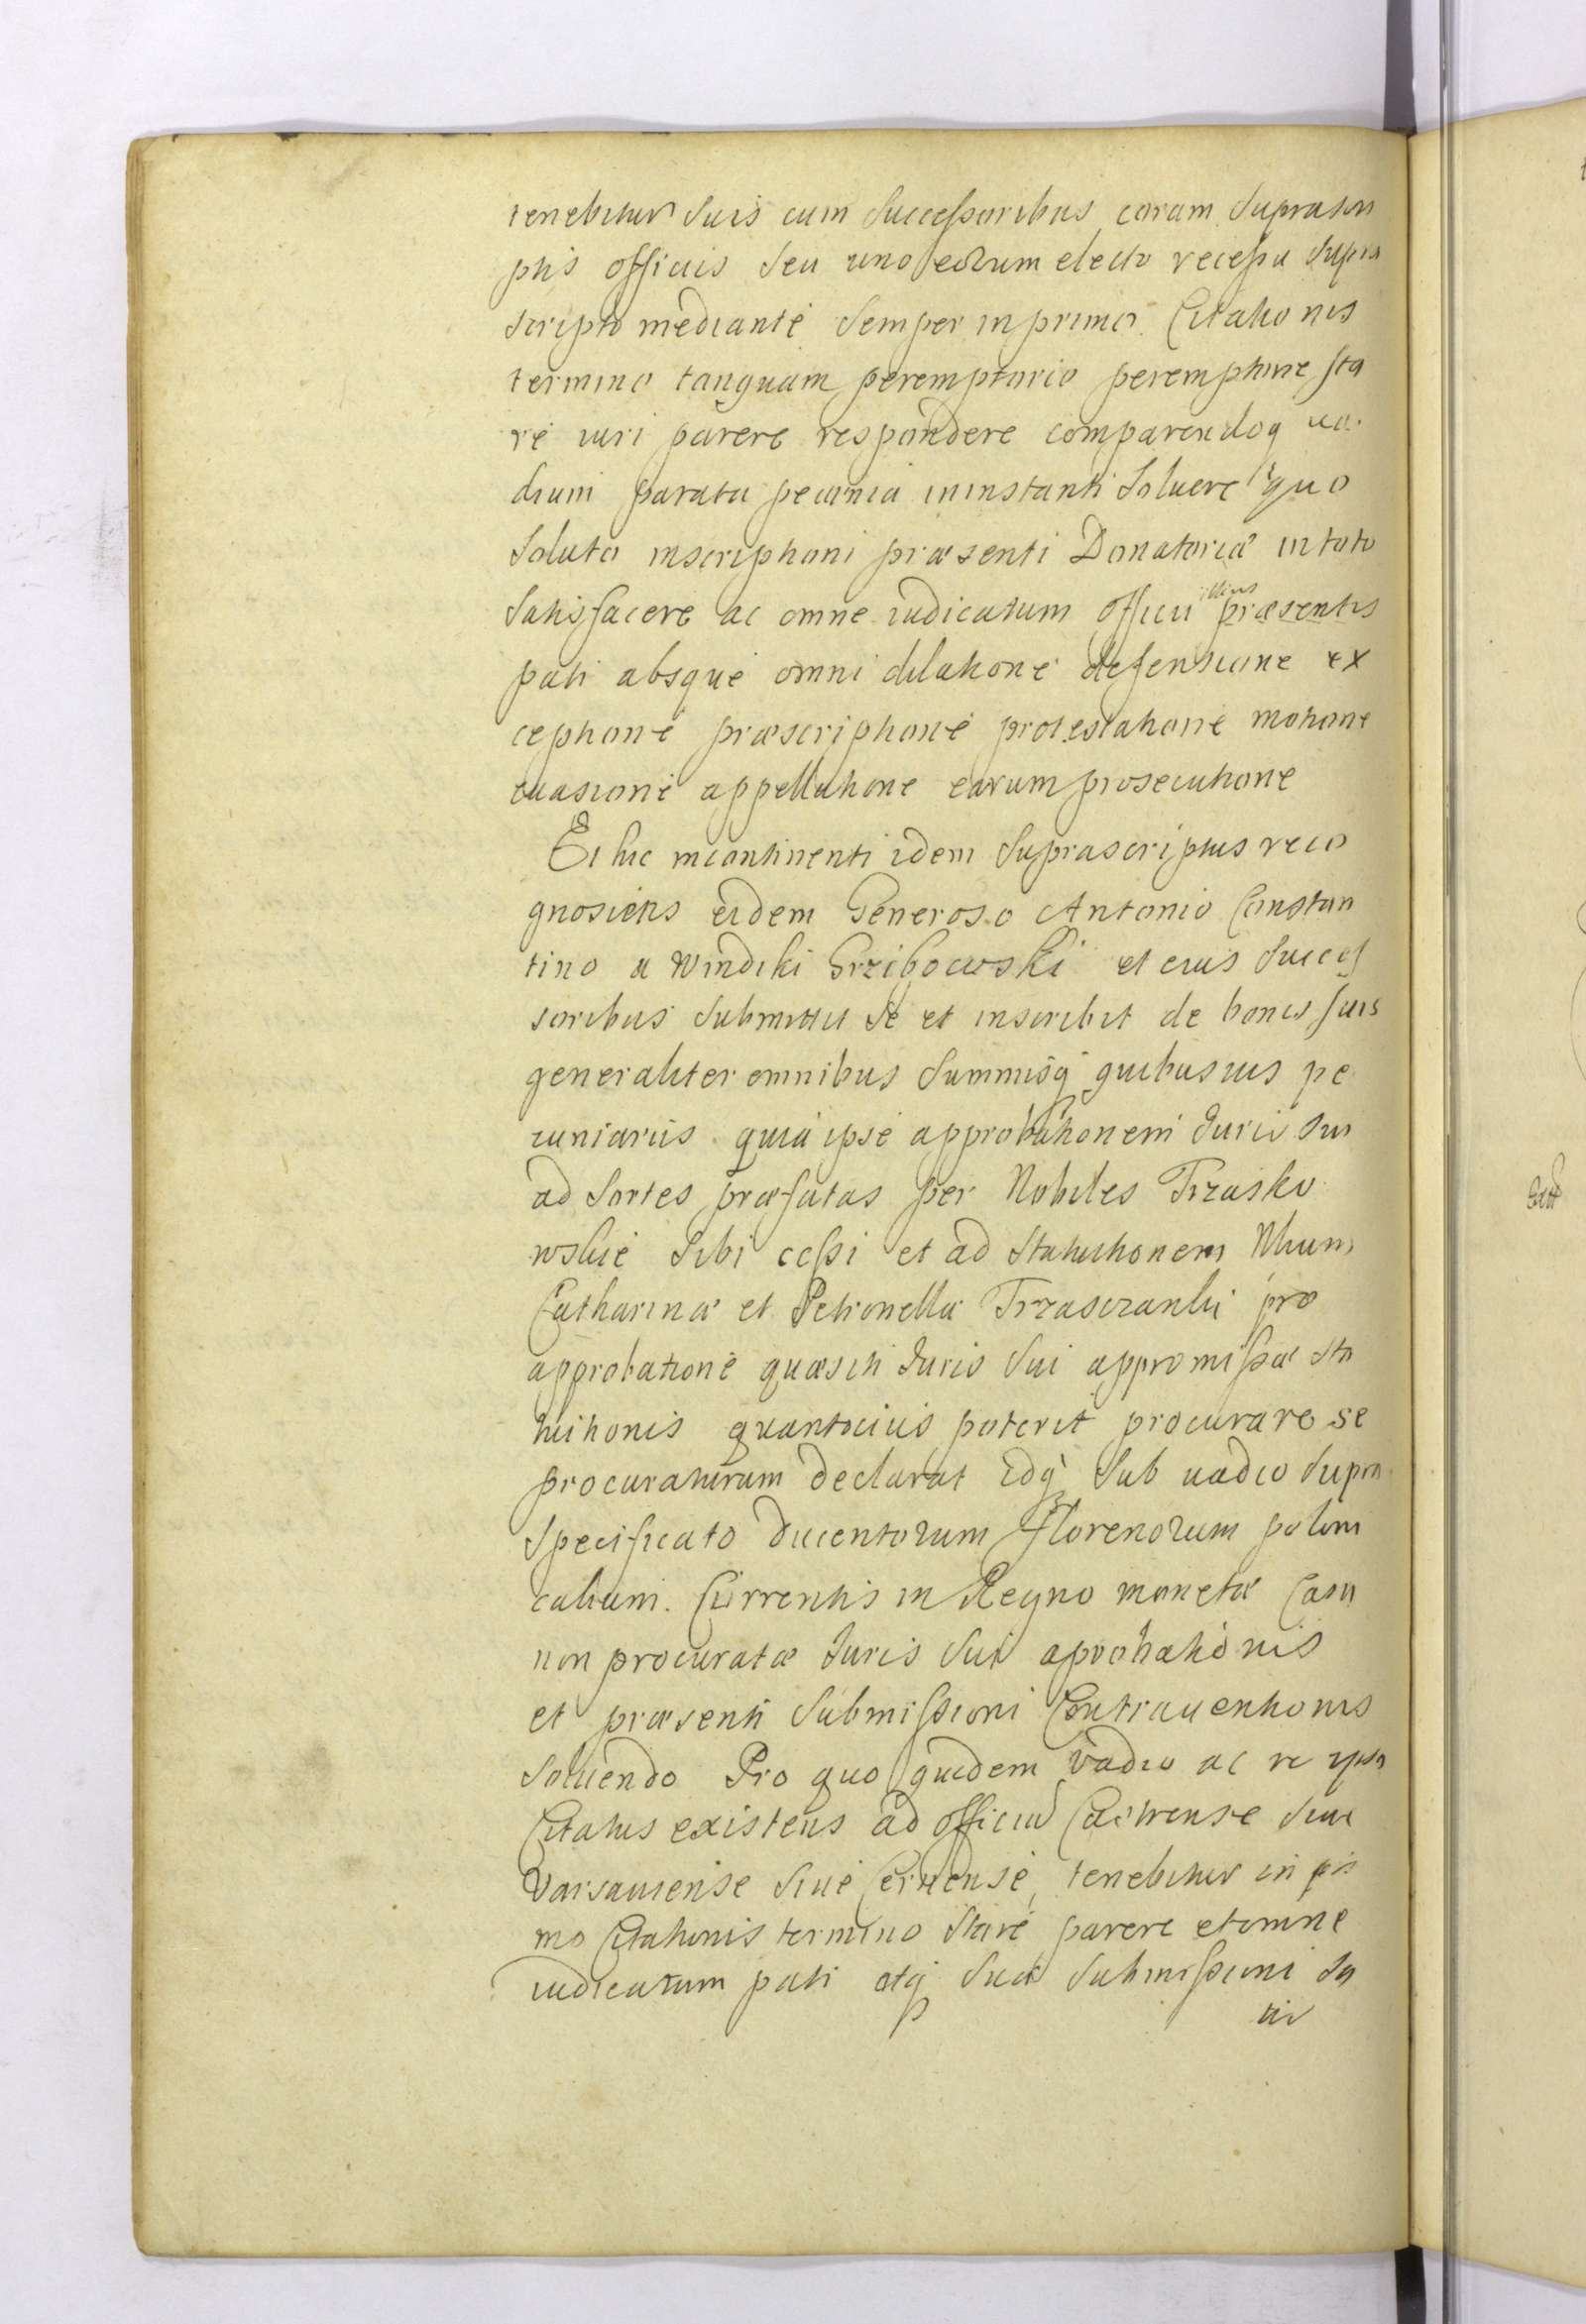 tenebitur suis cum Successoribus coram Suprascri
ptis officiis seu uno eorum electo recessu supra
scripto mediante semper in primo Citationis
termino tanquam peremptorio peremptorie sta
re iuri parere respondere comparendoq va
dium parata pecunia in instanti Soluere quo
soluto inscriptioni præsenti Donatoriæ in toto
Satisfacere ac omne iudicatum officii illius præsentis
pati absque omni dilatione defensione ex
ceptione præscriptione protestatione motione
euasione appellatione earum prosecutione
Et hic incontinenti idem Suprascriptus reco
gnoscens eidem Generoso Antonio Constan
tino a Windiki Grzibowski et eius Succes
soribus Submittit se et inscribit de bonis suis
generaliter omnibus Summisq quibusuis pe
cuniariis quia ipse approbationem Juris sui
ad Sortes præfatas per Nobiles Trzasko
wskie Sibi cessi et ad Statuitionem Nlium
Catharinæ et Petronellæ Trzasczanki pro
approbatione quæsiti Juris sui appromissæ sta
tuitionis quantocius poterit procurare se
procuraturum declarat Idq Sub uadio supra
specificato Ducentorum florenorum poloni
calium. Currentis in Regno monetæ Casu
non procuratæ Juris sui aprobationis
et præsenti Submissioni Contrauentionis
Soluendo Pro quo quidem vadio ac re ipsa
Citatus existens ad officiu Castrense siue
Varsauiense Siue Cernense, tenebitur in pri
mo Citationis termino Stare parere et omne
iudicatum pati atq Suæ Submissioni Sa
tis